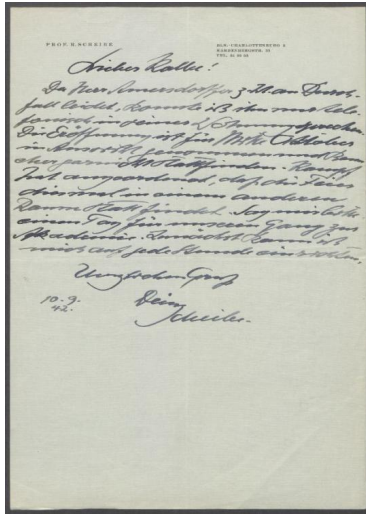 PROF. R. SCHEIBE
BLN.-CHARLOTTENBURG 9
Lieber Kolbe!
Da Herr Amersdorffer z. Zt. an Durch-
fall leidet, konnte ich ihn nur tele-
fonisch in seiner sprechen.
Die Eröffnung ist für Mitte Oktober
in Aussicht genommen und kann
aber stattfinden. Kampf
hat angeordnet, daß die Feier
diesmal in einem anderen
Raum stattfindet. Sag mir bitte
einen Tag für unseren Gang zur
Akademie. Zunächst kann ich
mich auf jede Stunde einrichten.
Herzlichen Gruß
Dein
10.9.
42.
Scheibe.